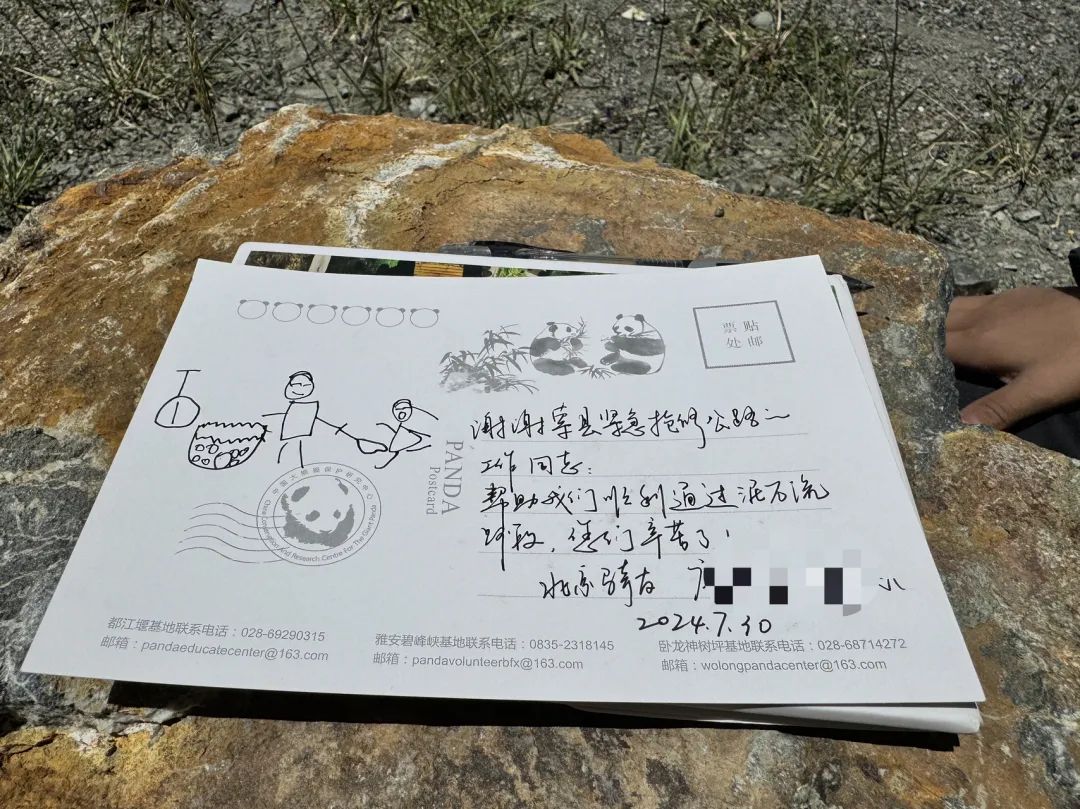 票贴
处邮
谢谢章县紧急抢修公路一
工作同志：
帮助我们顺利通过泥石流
路段，您们辛苦了！
北京骑友
2024.7.30
PANDA
Postcard
中国大熊猫保护研究中心
China Conservation And Research Centre For The Giant Panda
都江堰基地联系电话：028-69290315
邮箱：pandaeducatecenter@163.com
雅安碧峰峡基地联系电话：0835-2318145
邮箱：pandavolunteerbfx@163.com
卧龙神树坪基地联系电话：028-68714272
邮箱：wolongpandacenter@163.com